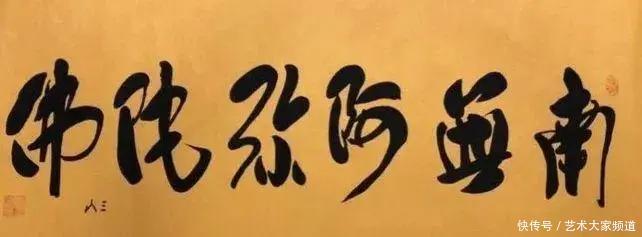 南無阿弥陀佛
快传号/艺术大家频道